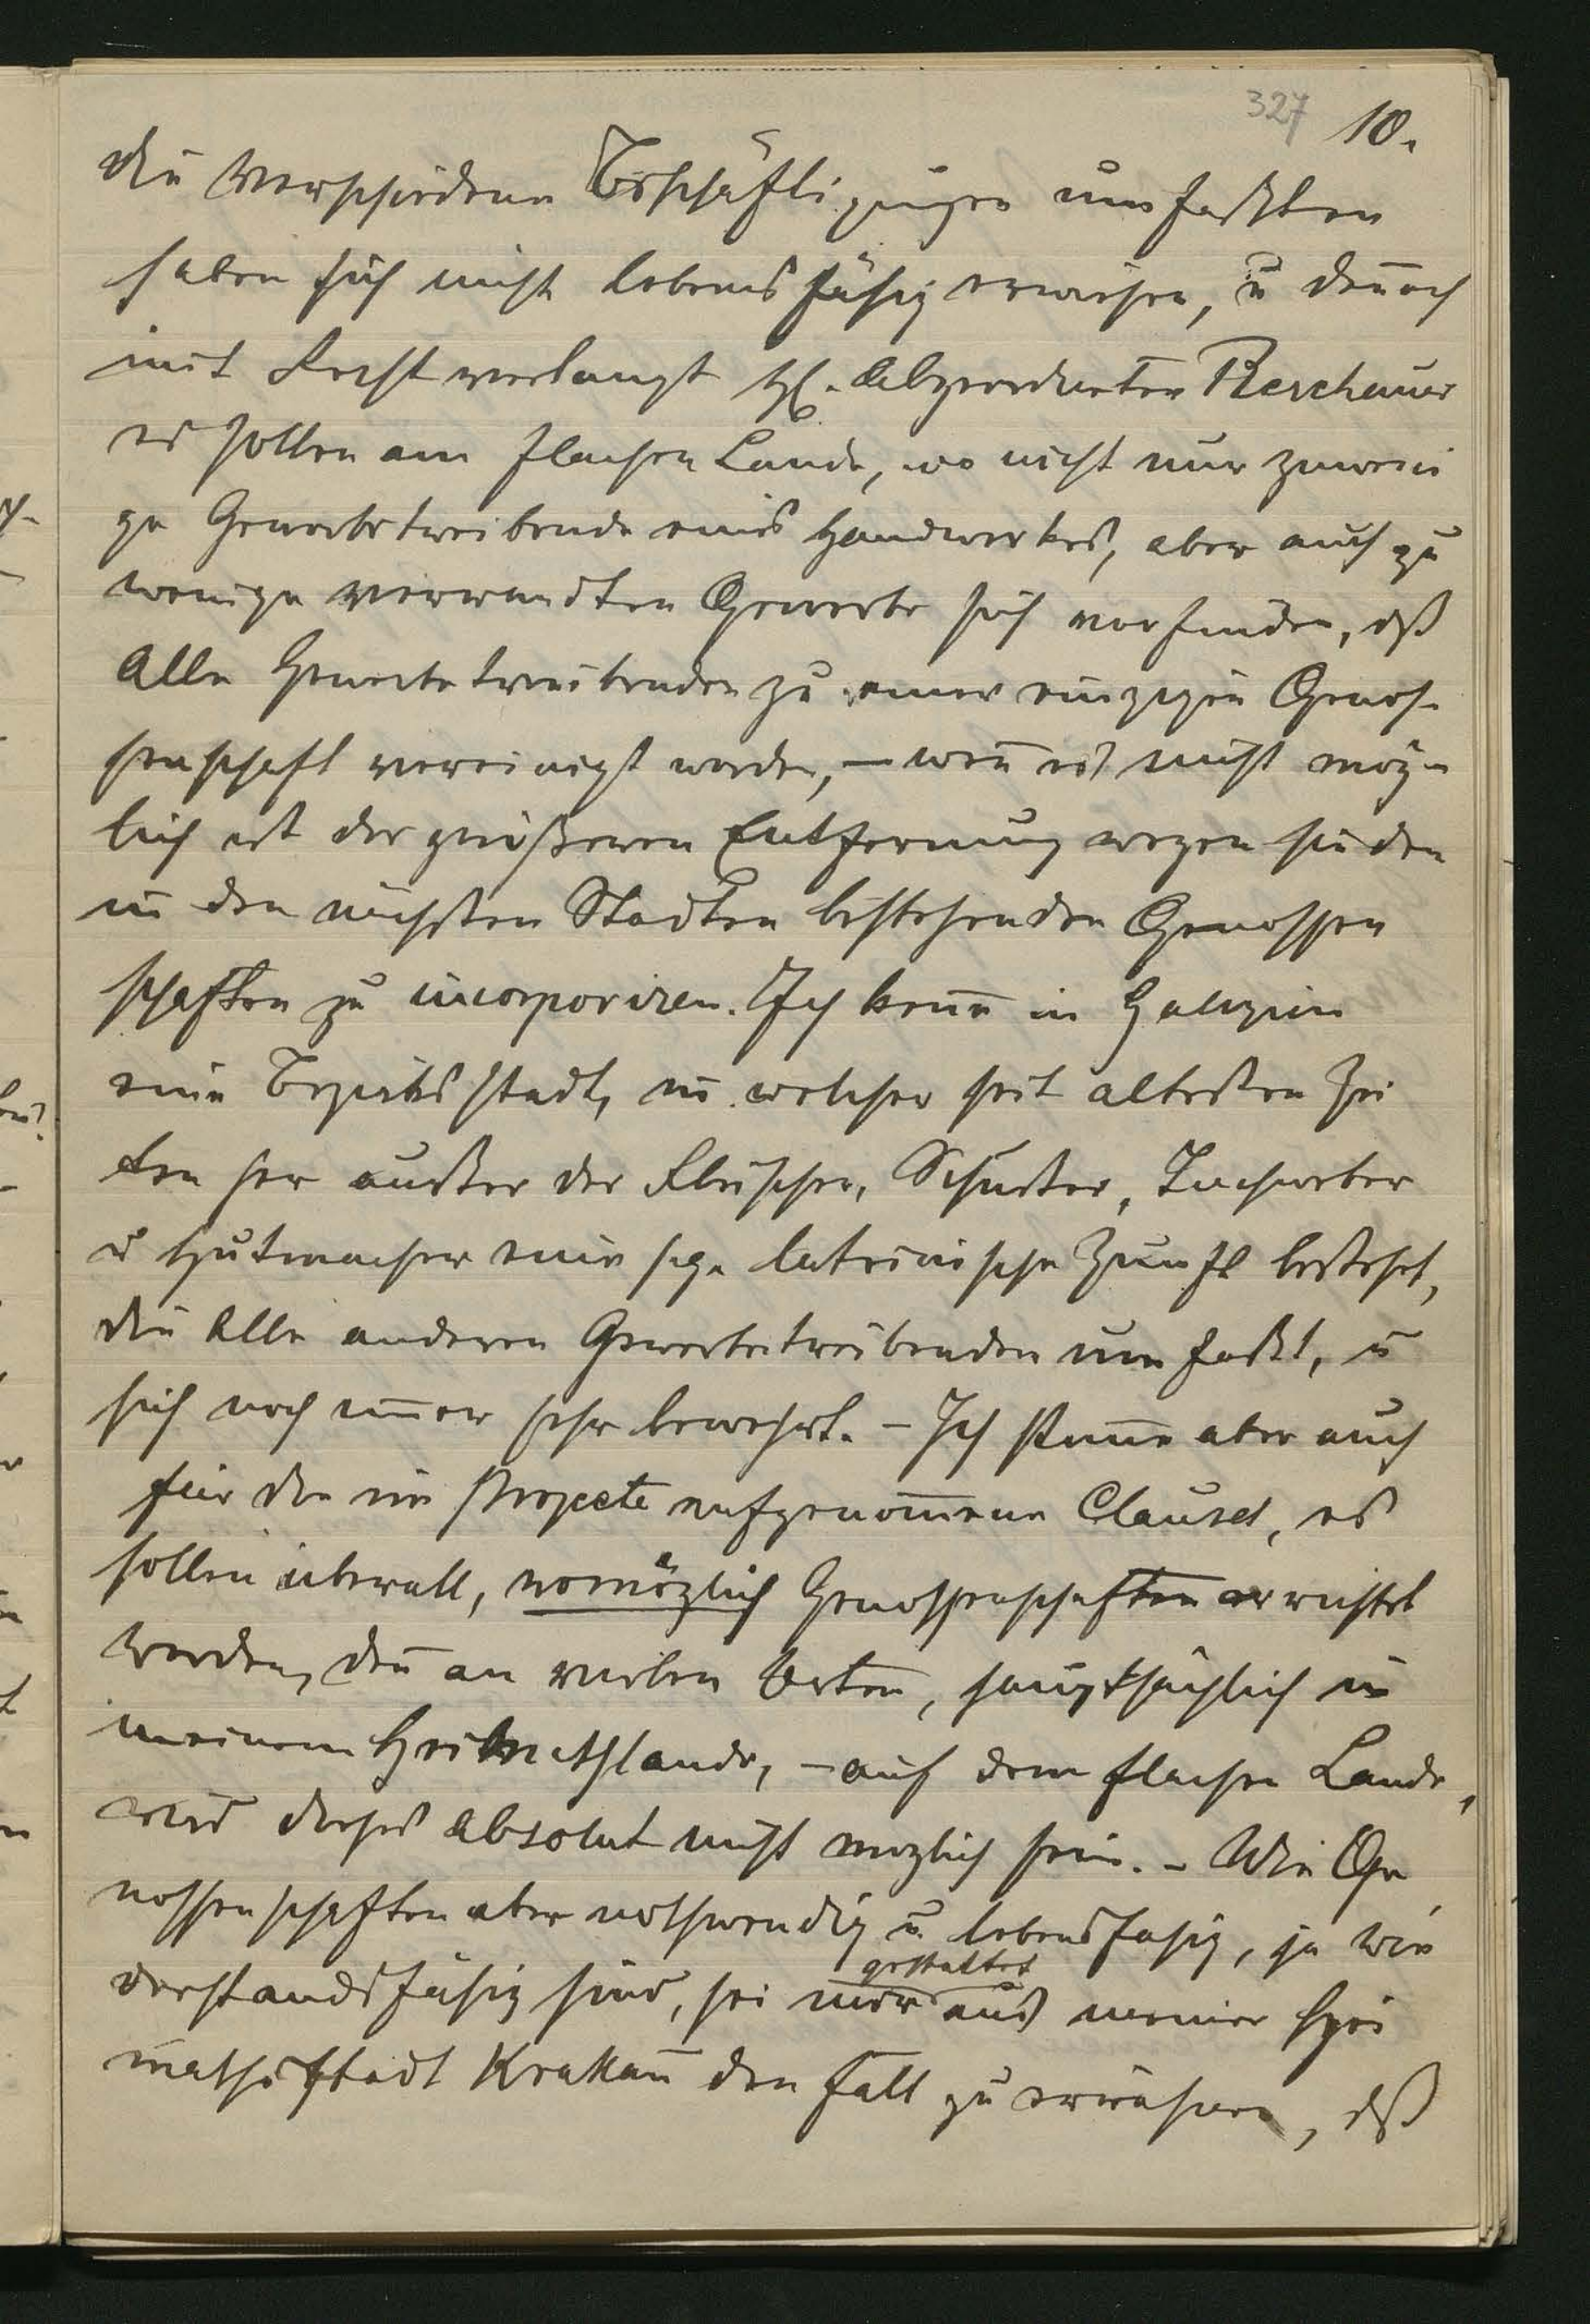 327 10.
die verschiedenen Beschäftigungen umfaßten
haben sich nicht lebensfähig erwiesen, u deñoch
mit Recht verlangt H. Abgeordneten Reschauer
es sollen am flachen Lande, wo nicht nur zuweni
ge Gewerbetreibende eines Handwerkes, aber auch zu
wenige verwandten Gewerbe sich vorfinden, dß
Alle Gewerbetreibenden zu einer einzigen Genos-
senschaft vereinigt werden, – weñ es nicht mög-
lich ist der größeren Entfernung wegen sie den
in den nächsten Stadten bestehenden Genossen
schaften zu incorporiren. Ich keñe in Galizien
eine Bezirksstadt, in welcher seit altesten Zei
ten her außer der Fleischer, Schuster, Tuchweber
u Hutmacher eine sge lateinische Zunft besteht,
die Alle anderen Gewerbetreibenden umfaßt, u
sich noch im̄er sehr bewehrt. – Ich stim̄e aber auch
für die im Projecte aufgenom̄ene Clausel, es
sollen überall, womöglich Genossenschaften errichtet
werden, deñ an vielen Orten, hauptsächlich in
meinem Heimathlande, – auf dem flachen Lande,
wird dieses absolut nicht moglich sein. – Wie Ge
nossenschaften aber nothwendig u. lebensfahig, ja wie
gestattet
verstandsfähig sind, sei mir aus meiner Hei
mathsstadt Krakau den Fall zu erwähnen, dß